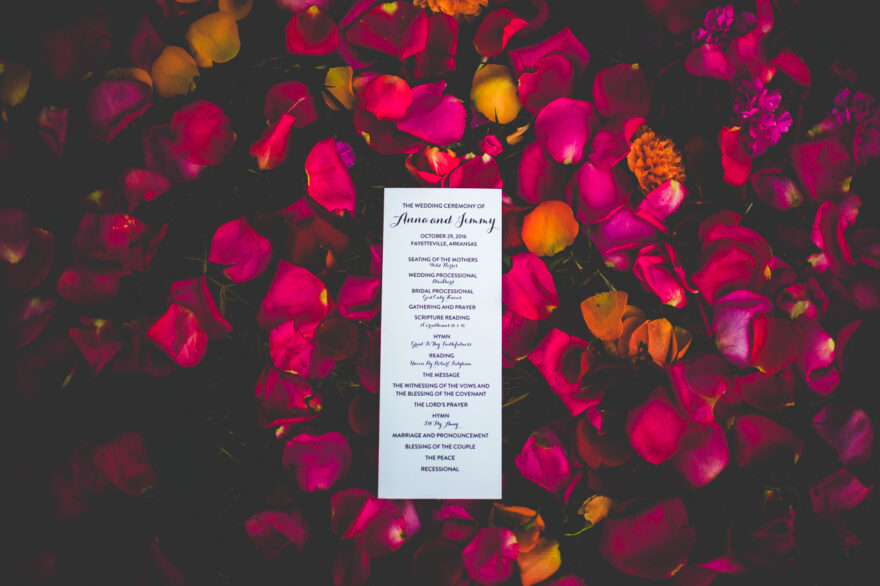 THE WEDDING CEREMONY OF
Anna and Jimmy
OCTOBER 29, 2016
FAYETTEVILLE, ARKANSAS
SEATING OF THE MOTHERS
Wild Horses
WEDDING PROCESSIONAL
BRIDAL PROCESSIONAL
God Only Knows
GATHERING AND PRAYER
SCRIPTURE READING
HYMN
Great Is Thy Faithfulness
READING
THE MESSAGE
THE WITNESSING OF THE VOWS AND
THE BLESSING OF THE COVENANT
THE LORD'S PRAYER
HYMN
I'll Fly Away
MARRIAGE AND PRONOUNCEMENT
BLESSING OF THE COUPLE
THE PEACE
RECESSIONAL